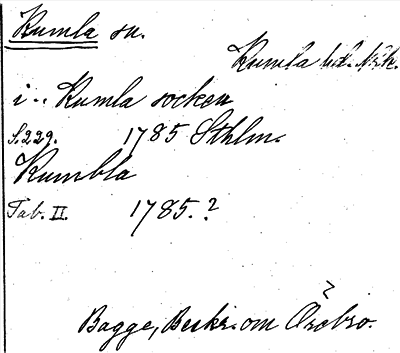 Kumla sn.
Kumla hd. Närk.
i .. Kumla socken
S. 229. 1785 Sthlm.
Kumbla
Tab. II. 1785.?
Bagge, Beskr. om Örebro.